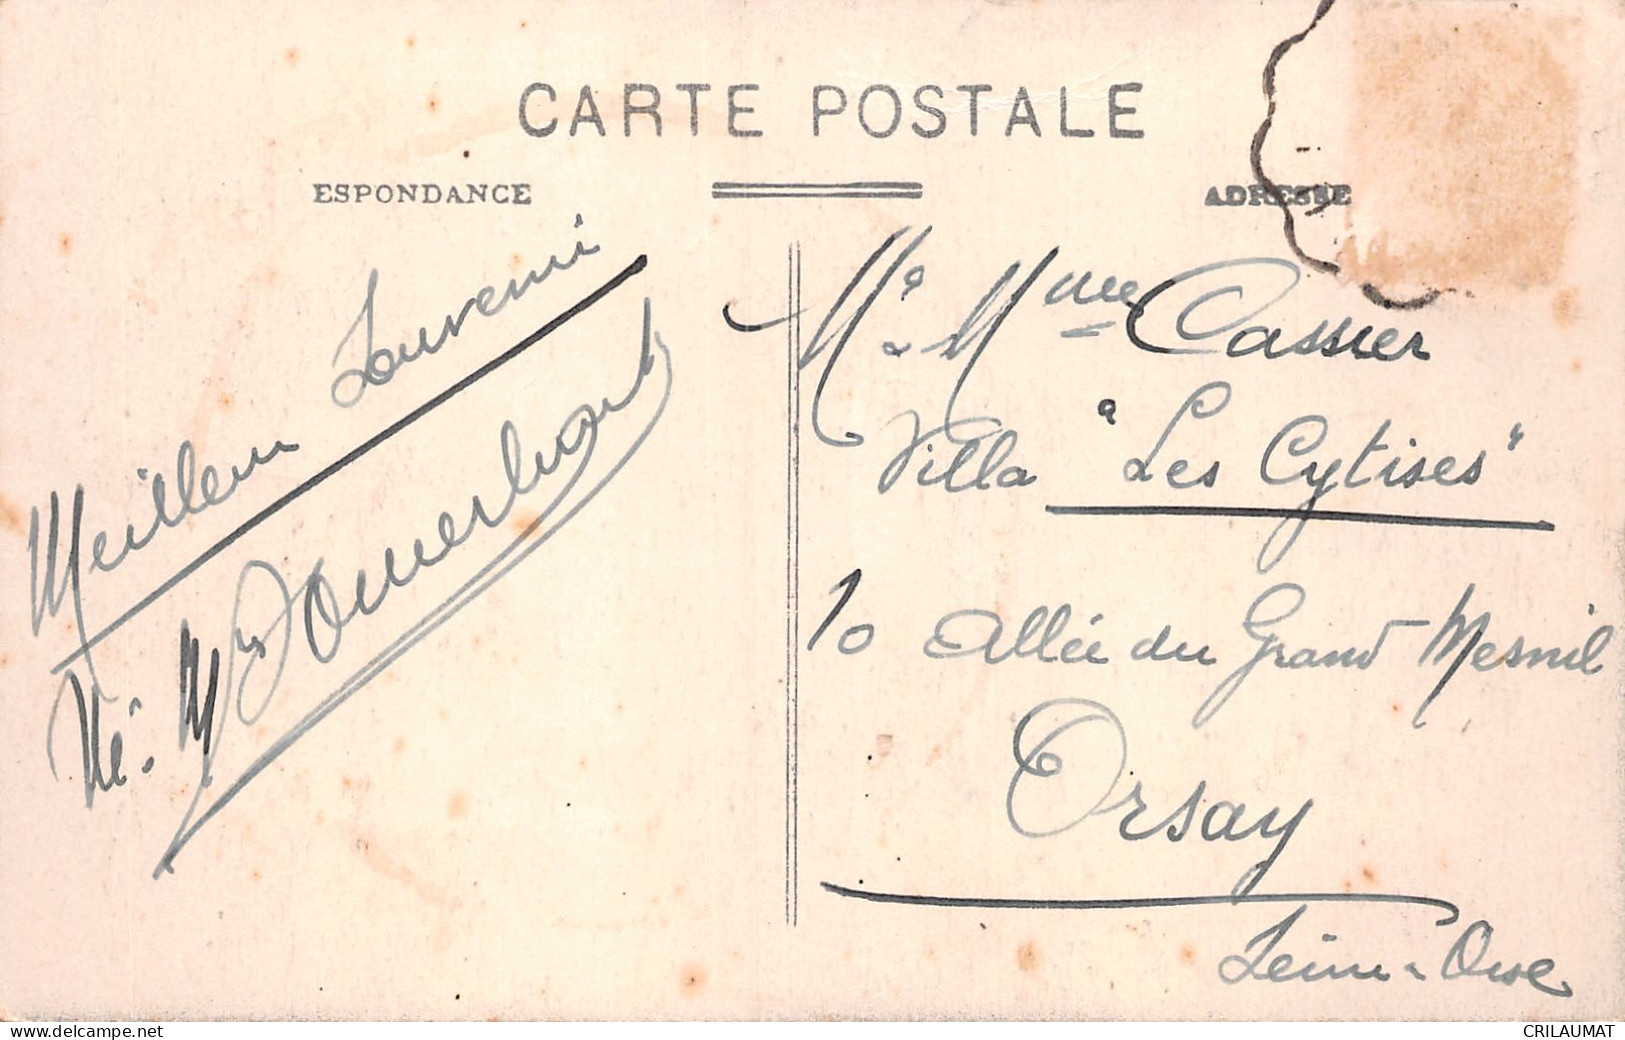 CARTE POSTALE
ESPONDANCE
ADRESSE
Meilleur Souvenir
M. Mme Cassier
Villa "Les Cytises"
10 Allée du Grand Mesnil
Orsay
Seine & Oise
www.delcampe.net
CRILAUMAT